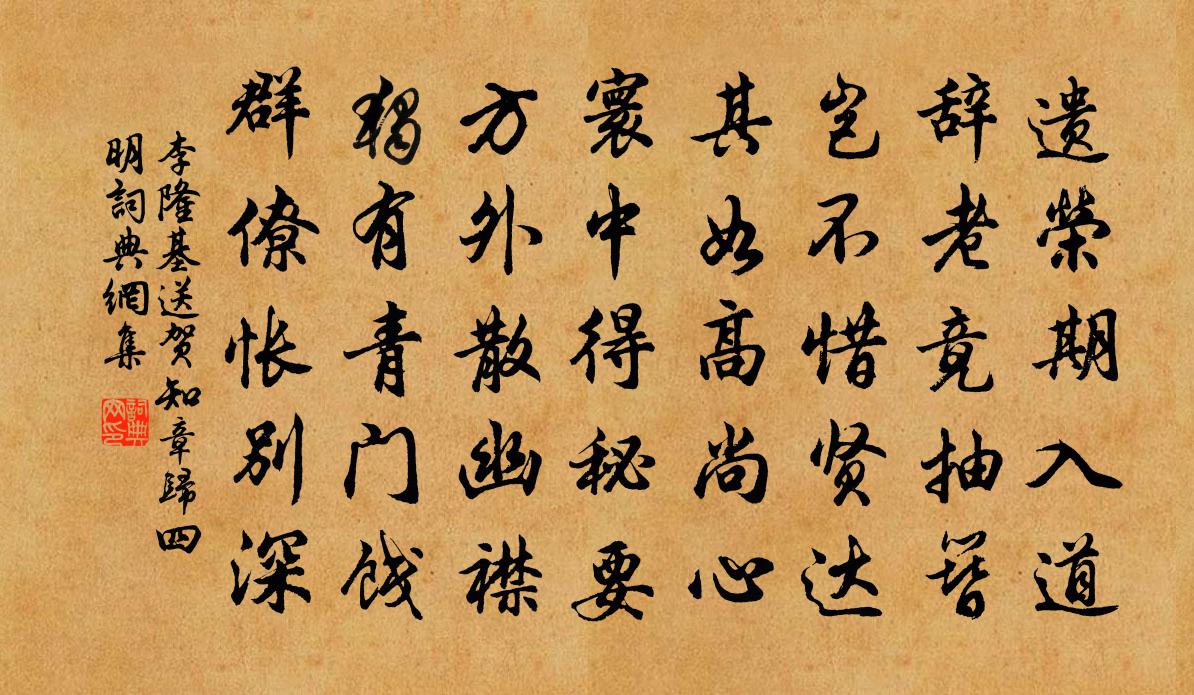 遗榮期入道
辞老竟抽簪
岂不惜贤达
其如高尚心
寰中得秘要
方外散幽襟
獨有青门饯
群僚怅别深
李隆基送贺知章歸四
明詞典網集
詞典
网印